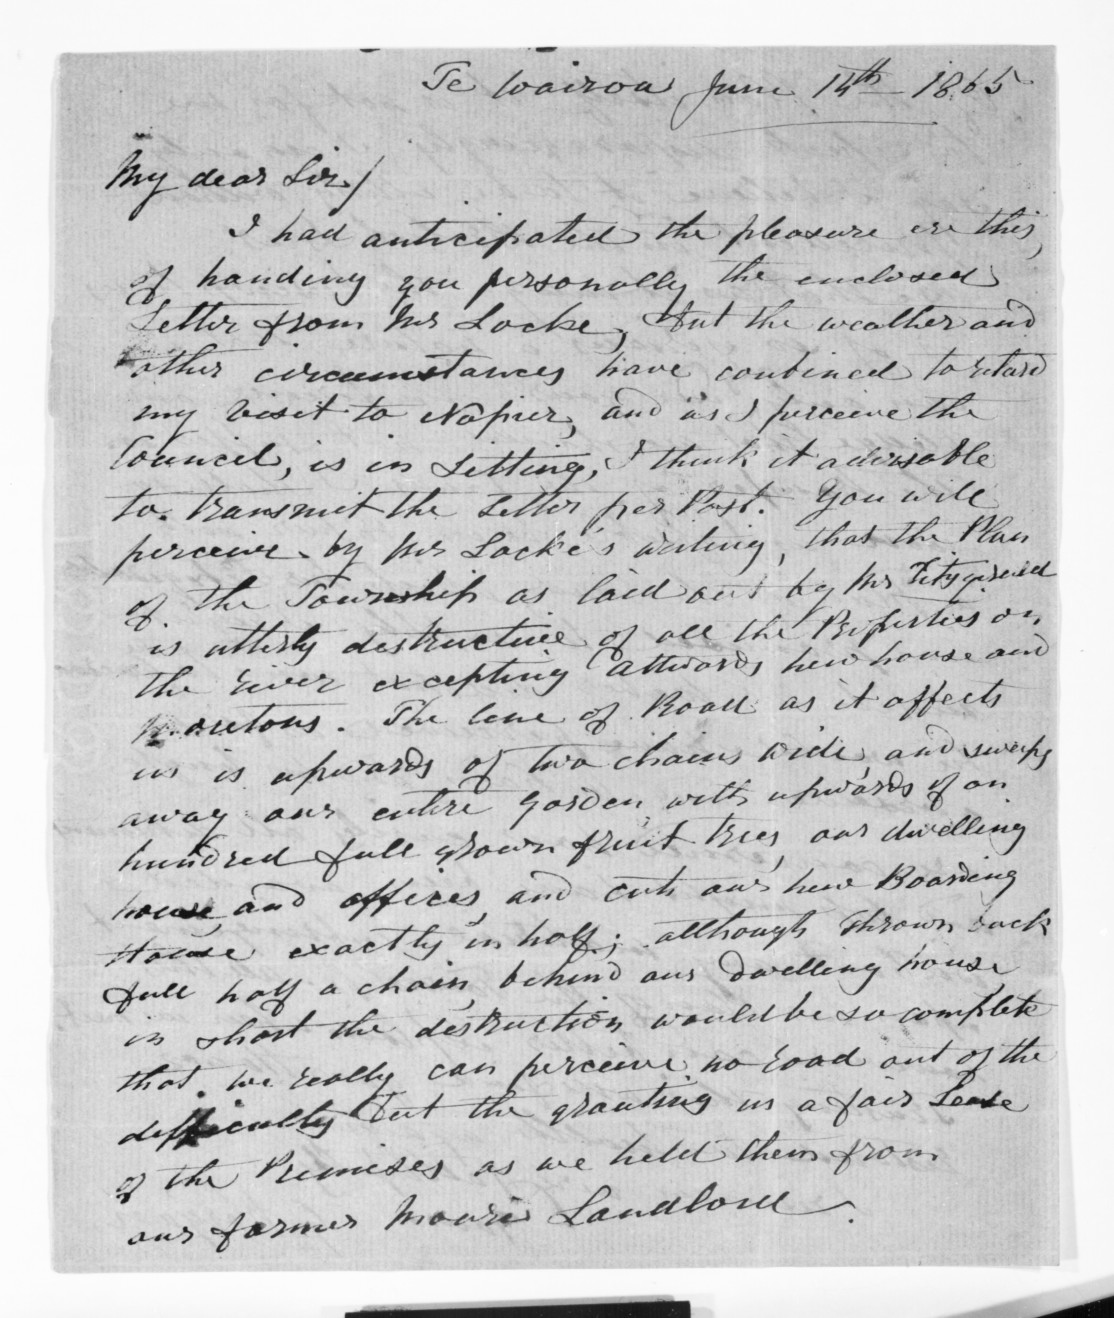 Te Wairoa June 14th 1865
My dear Sir/
I had anticipated the pleasure ere this,
of handing you personally the enclosed
Letter from Mr Locke, but the weather and
other circumstances have conbined to retard
my visit to Napier, and as I perceive the
Council, is in Sitting, I think it advisable
to transmit the Letter per Post. You will
perceive by Mr Locke's writing, that the Plan
of the Township as laid out by Mr Fitzgerald
is utterly destructive of all the Properties on
the river excepting Attwoods new house and
Moretons. The line of Road as it affects
us is upwards of two chains wide and sweeps
away our entire Garden with upwards of an
hundred full grown fruit trees, our dwelling
house, and offices, and cuts our new Boarding
House exactly in half; although thrown back
full half a chain, behind our dwelling house,
in short the destruction would be so complete
that we really can perceive no road out of the
difficulty but the granting us a fair Lease
of the Premises as we held them from
our former Maori Landlord.